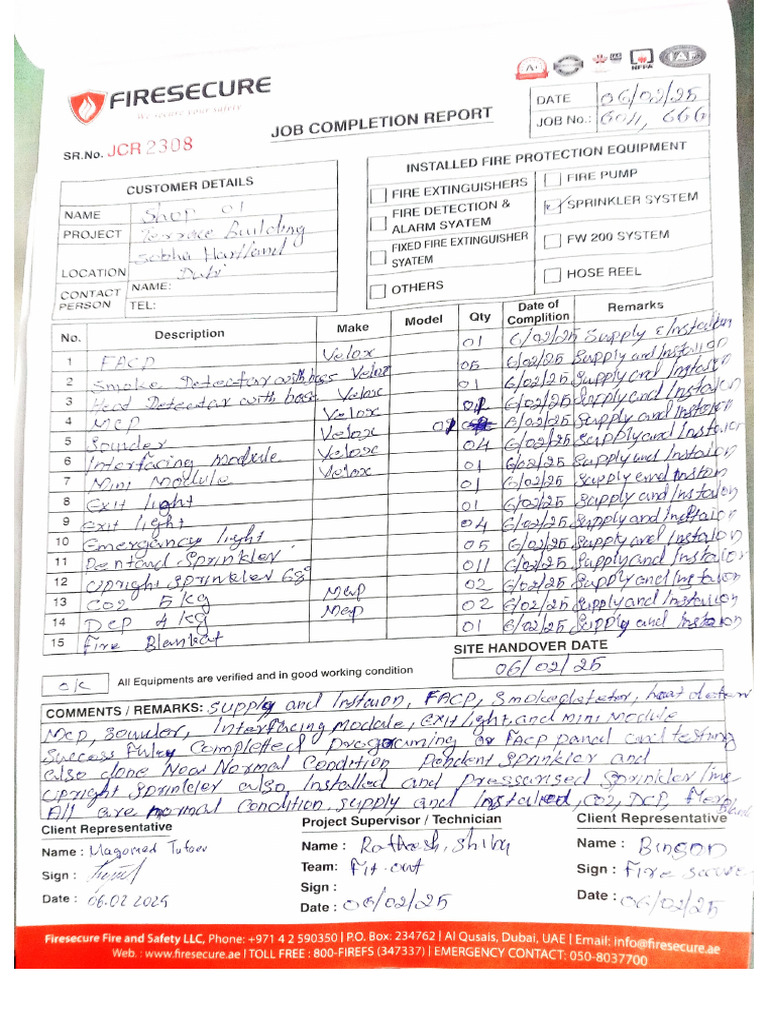 FIRESECURE
We secure your safety
JOB COMPLETION REPORT
NFPA
IAF
DATE 06/02/25
JOB No.: 604, 666
SR.No. JCR 2308
CUSTOMER DETAILS
NAME Shop 01
PROJECT Terrace Building
Sobha Hartland
LOCATION
CONTACT PERSON NAME:
TEL:
INSTALLED FIRE PROTECTION EQUIPMENT
FIRE EXTINGUISHERS FIRE PUMP
FIRE DETECTION & ALARM SYATEM ✓ SPRINKLER SYSTEM
FIXED FIRE EXTINGUISHER SYATEM FW 200 SYSTEM
OTHERS HOSE REEL
No. Description Make Model Qty Date of Complition Remarks
1 FACP Velox 01 6/02/25 Supply & Instalation
2 Smoke Detectar with base Velox 05 6/02/25 Supply and Instalaion
3 Heat Detectar with base Velox 01 6/02/25 Supply and Instaion
4 MCP Velox 01 6/02/25 Supply and Instalaion
5 Sounder Velox 01 6/02/25 Supply and Instalaion
6 Interfacing Module Velox 04 6/02/25 Supply and Instalaion
7 Mini Module Velox 01 6/02/25 Supply and Instaion
8 Exit light 01 6/02/25 Supply and Instalaion
9 Exit light 01 6/02/25 Supply and Instalaion
10 Emergancy light 04 6/02/25 Supply and Instalaion
11 Pentand Sprinkler 05 6/02/25 Supply and Instalaion
12 Upright Sprinkler 68° 011 6/02/25 Supply and Instalaion
13 CO2 5 kg Map 02 6/02/25 Supply and Instalaion
14 DCP 4 kg Map 02 6/02/25 Supply and Instalaion
15 Fire Blankat 01 6/02/25 Supply and Instalaion
SITE HANDOVER DATE
06/02/25
ok All Equipments are verified and in good working condition
COMMENTS / REMARKS: Supply and Instaion, FACP, Smokedetetor, heat detetaer
MCP, Sounder, Interfacing Module, exit light and mini Module
Success fulley Completed Programing of FACP panal and testing
also done Now Normal Condition Pendent Sprinkler and
Upright Sprinkler also Installed and pressarised Sprinkler line
All are normal Condition, supply and Installed, CO2, DCP, Fier Blankt
Client Representative Project Supervisor / Technician Client Representative
Name : Magomed Name : Ratheesh, Shibu Name : Binson
Sign : Team: Fit-out Sign : Fire secure
Date : 06.02 2025 Sign :
Date : 06/02/25 Date : 06/02/25
Firesecure Fire and Safety LLC, Phone: +971 4 2 590350 | P.O. Box: 234762 | Al Qusais, Dubai, UAE | Email: info@firesecure.ae
Web. : www.firesecure.ae | TOLL FREE : 800-FIREFS (347337) | EMERGENCY CONTACT: 050-8037700